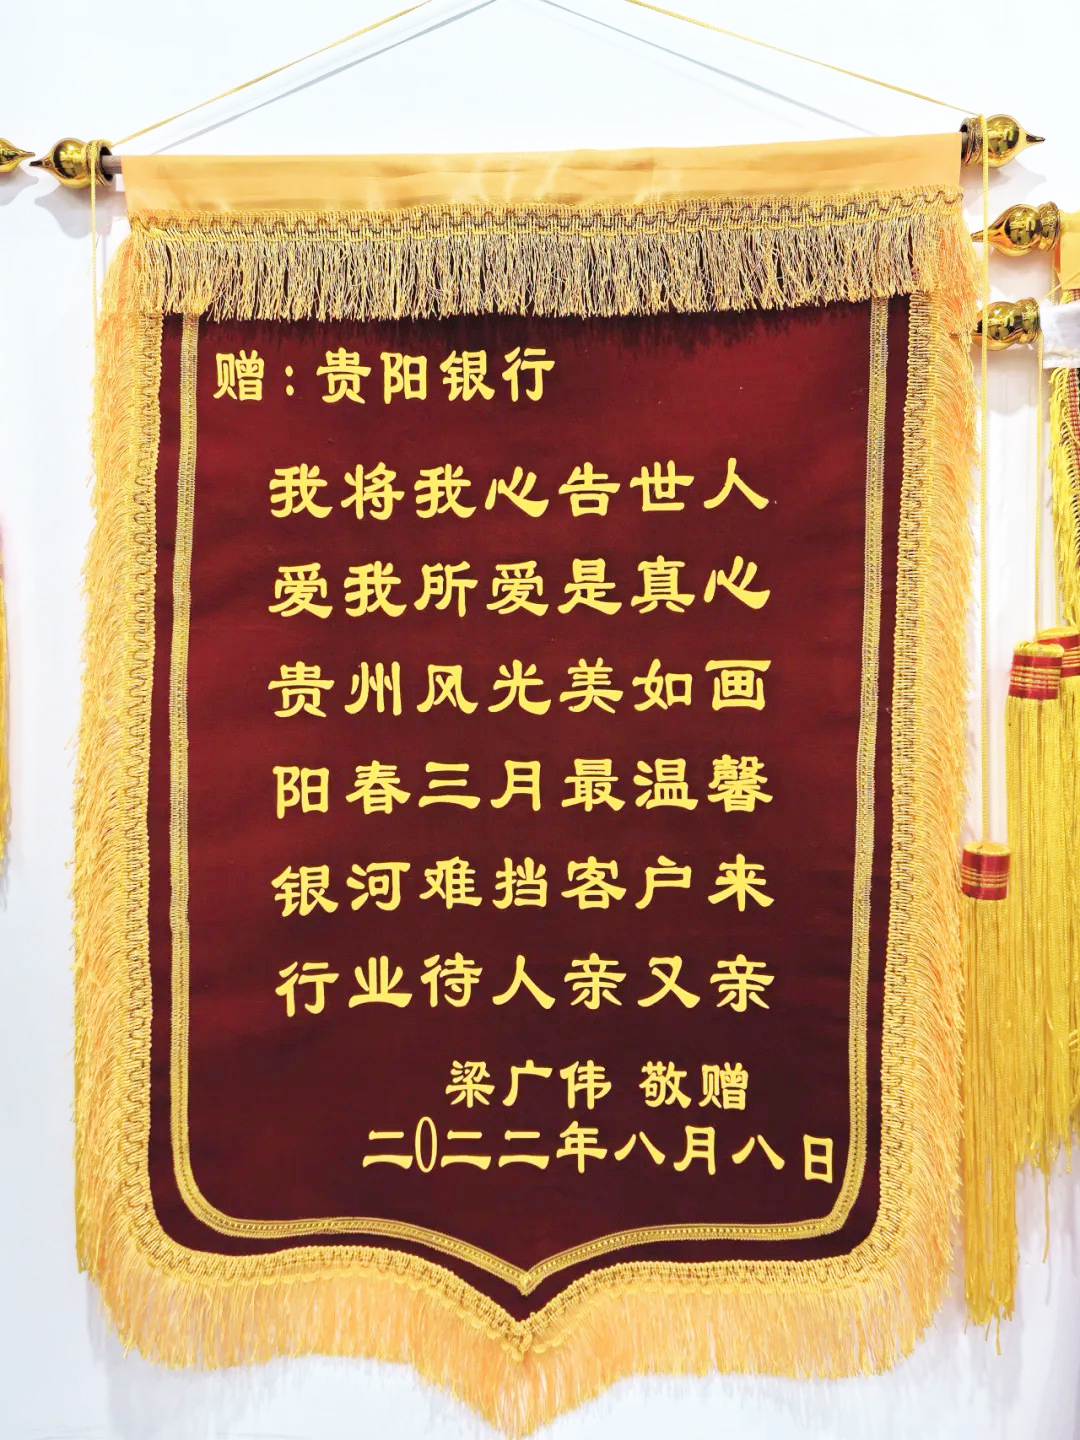 赠:贵阳银行
我将我心告世人
爱我所爱是真心
贵州风光美如画
阳春三月最温馨
银河难挡客户来
行业待人亲又亲
梁广伟 敬赠
二0二二年八月八日